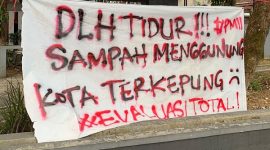 DLH TIDUR!!!
#PMII
SAMPAH MENGGUNUNG
KOTA TERKEPUNG
#EVALUASI TOTAL!